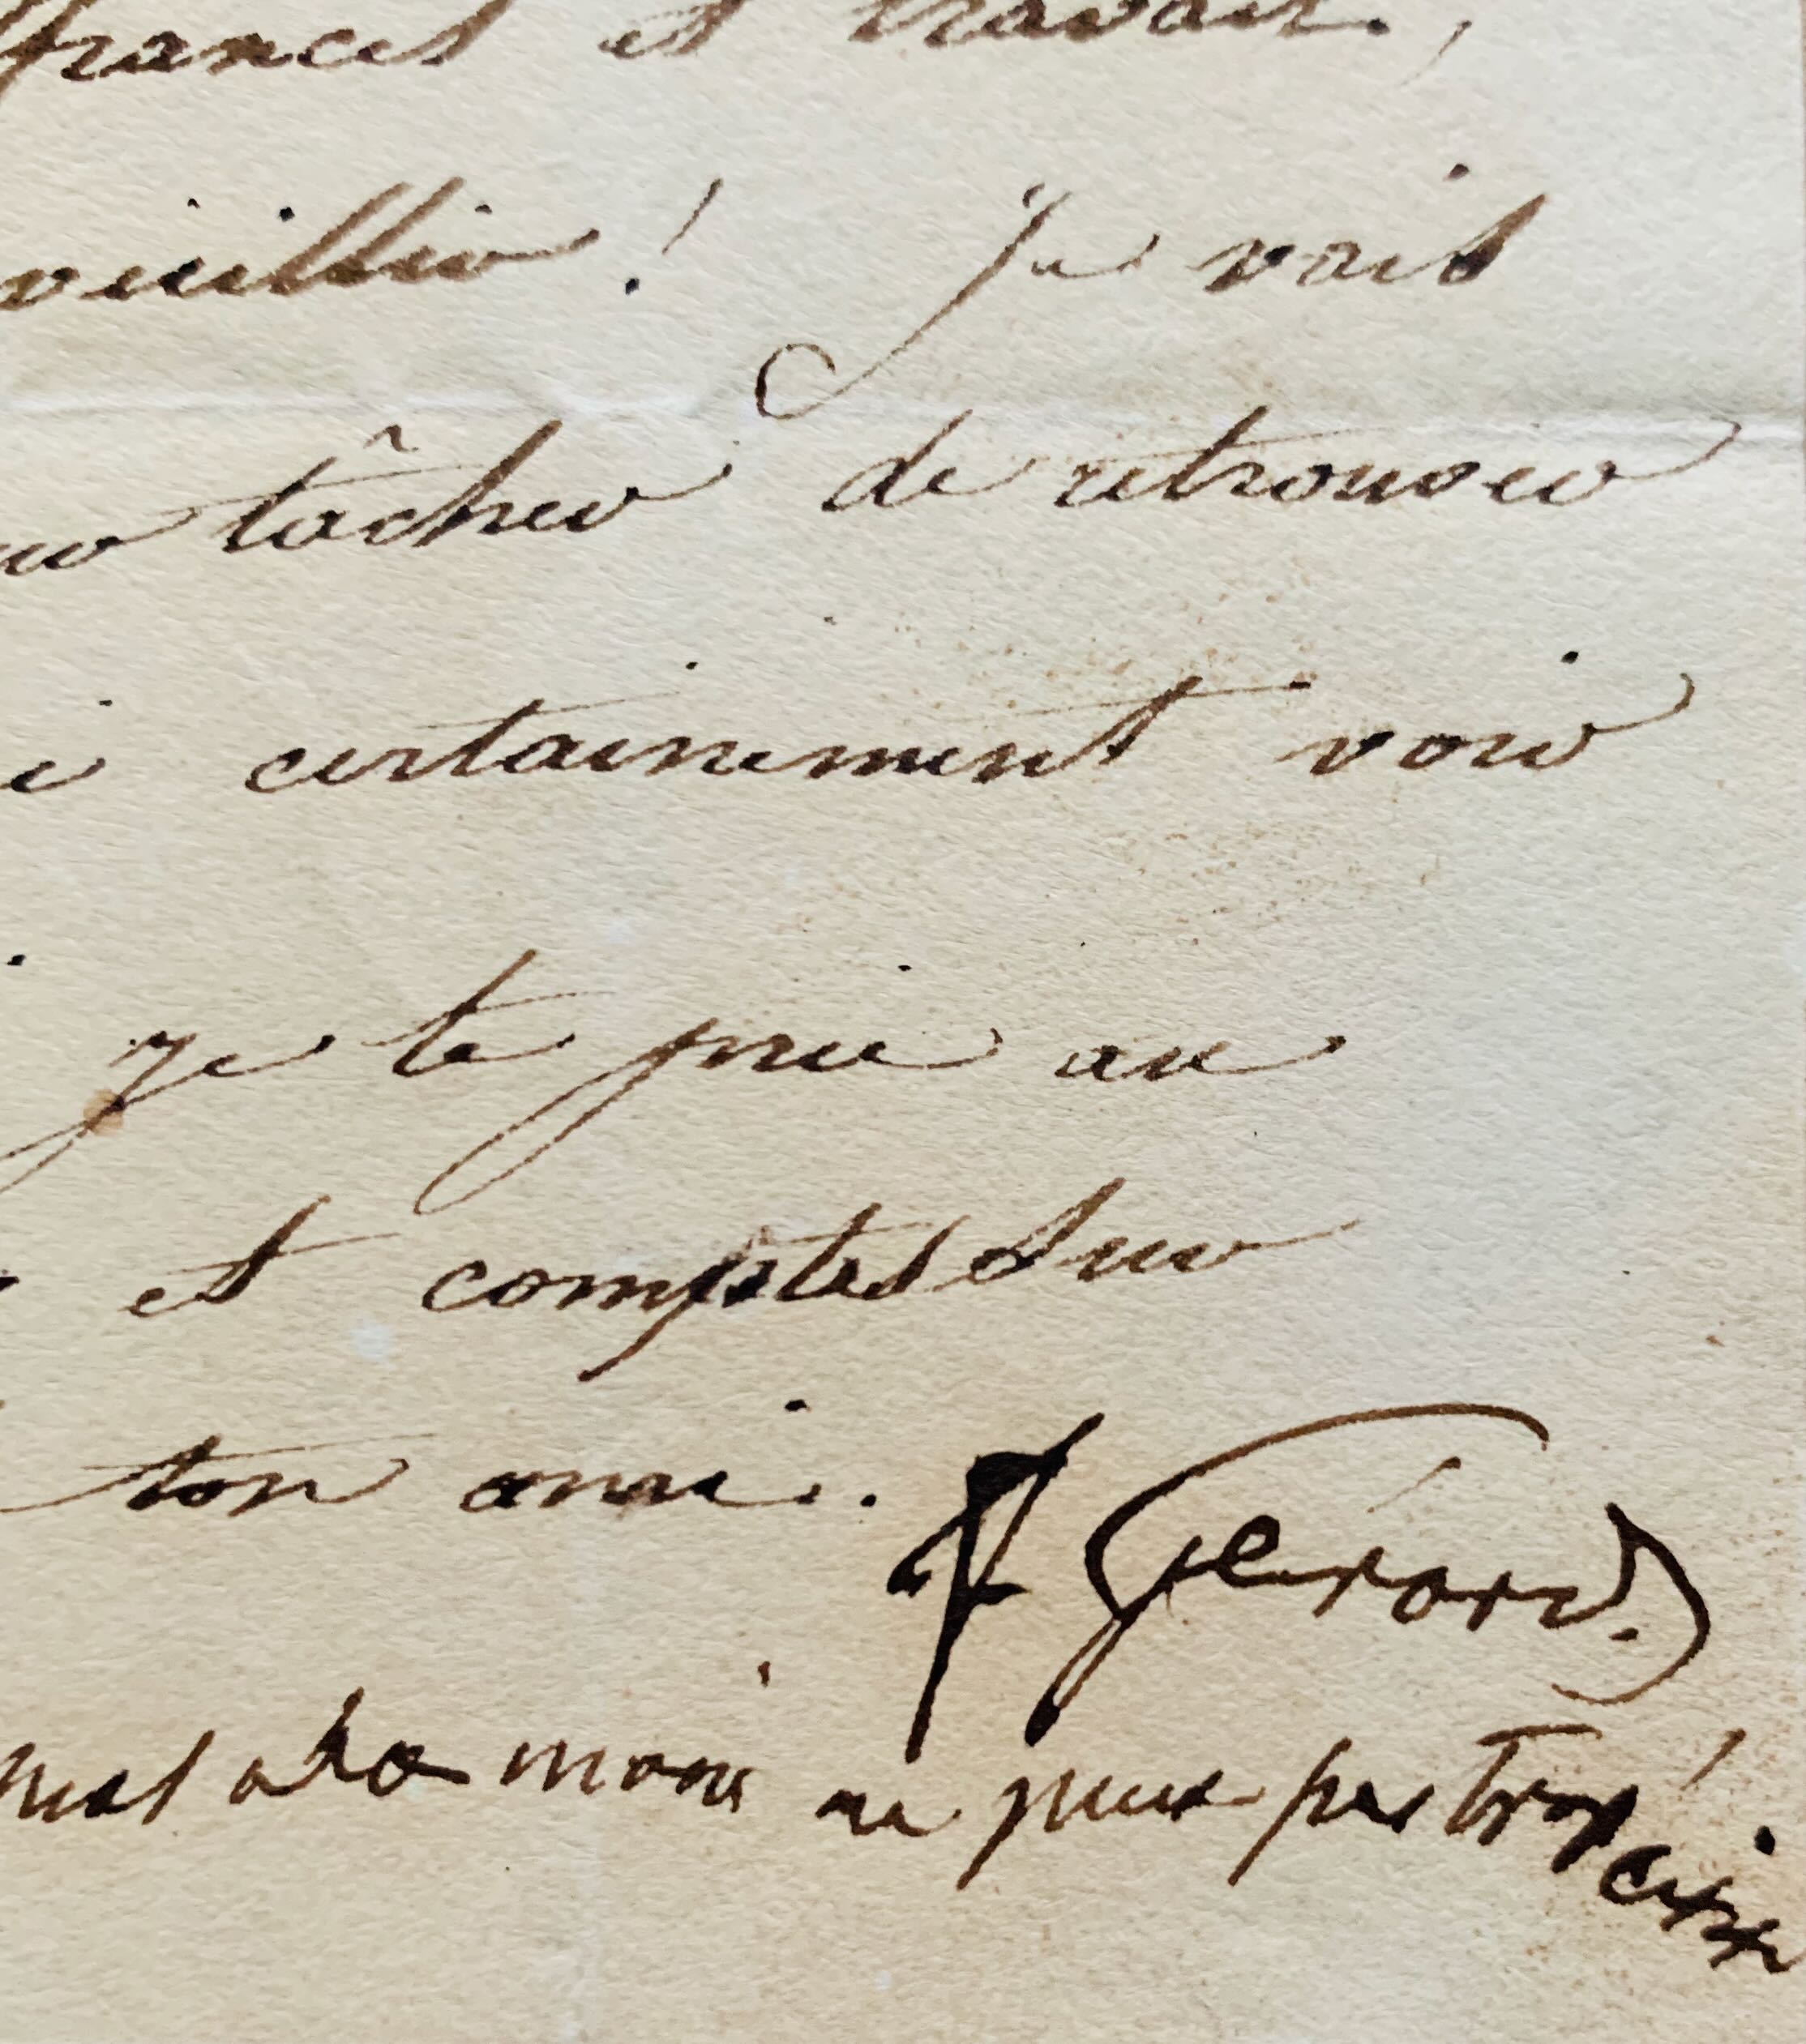 francs et travail,
vieillir ! Je vais
tâcher de retrouver
certainement voir
je te prie au
et comptes sur
ton ami. F Gérard
mal à la main ne peux pas trop écrire